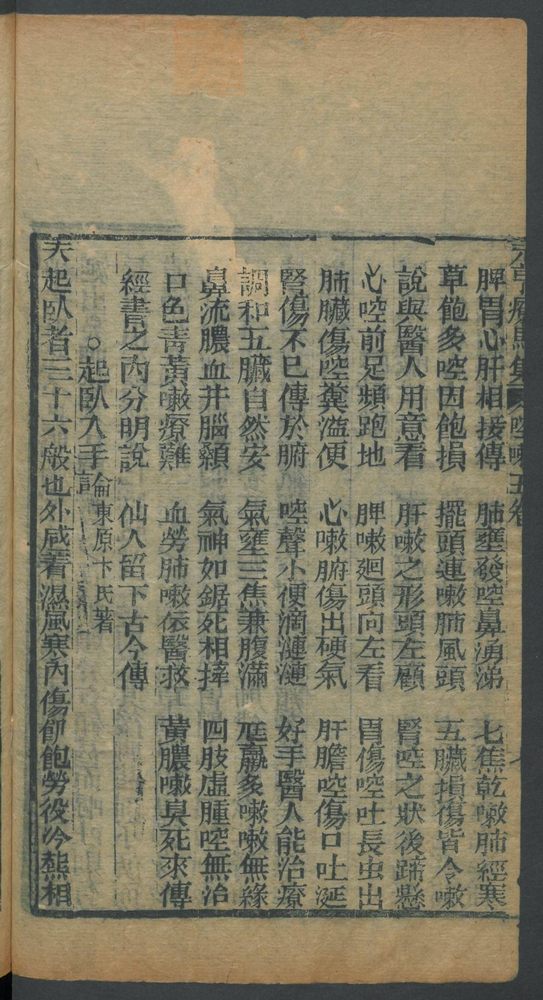 元亨療馬集 空嗽 五卷
脾胃心肝相接傳 肺壅發啌鼻湧涕 七焦乾嗽肺經寒
草飽多啌因飽損 擺頭連嗽肺風頭 五臟損傷皆令嗽
說與醫人用意看 肝嗽之形頭左顧 腎啌之狀後蹄懸
心啌前足頻跑地 脾嗽廻頭向左看 胃傷啌吐長虫出
肺臟傷啌糞溢便 心嗽腑傷出硬氣 肝膽啌傷口吐涎
腎傷不已傳於腑 啌聲小便滴漣漣 好手醫人能治療
調和五臟自然安 氣壅三焦兼腹滿 尫羸多嗽嗽無緣
鼻流膿血并腦顙 氣神如鋸死相擇 四肢虛腫啌無治
口色青黃嗽療難 血勞肺嗽依醫救 黃膿嗽臭死來傳
經書之內分明說 仙人留下古今傳
○起臥入手論 東原卞氏著
夫起臥者三十六般也外感着濕風寒內傷卽飽勞役冷熱相